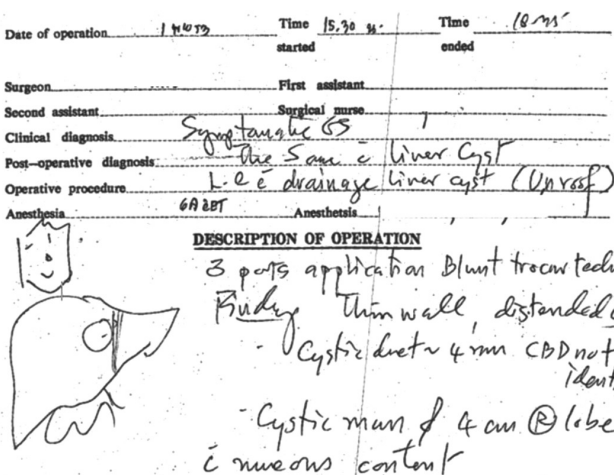 Date of operation
Time started 15.30
Time ended
Surgeon
First assistant
Second assistant
Surgical nurse
Clinical diagnosis Symptomatic GS
Post-operative diagnosis The Same c̄ liver Cyst
Operative procedure L.C c̄ drainage liver cyst (Unroof)
Anesthesia GA ETT
Anesthetsis
DESCRIPTION OF OPERATION
3 ports application Blunt trocar techn
Finding Thin wall, distended
· Cystic duct ~ 4 mm CBD not
ident
· Cystic 4 cm Ⓡ lobe
c̄ mucous content